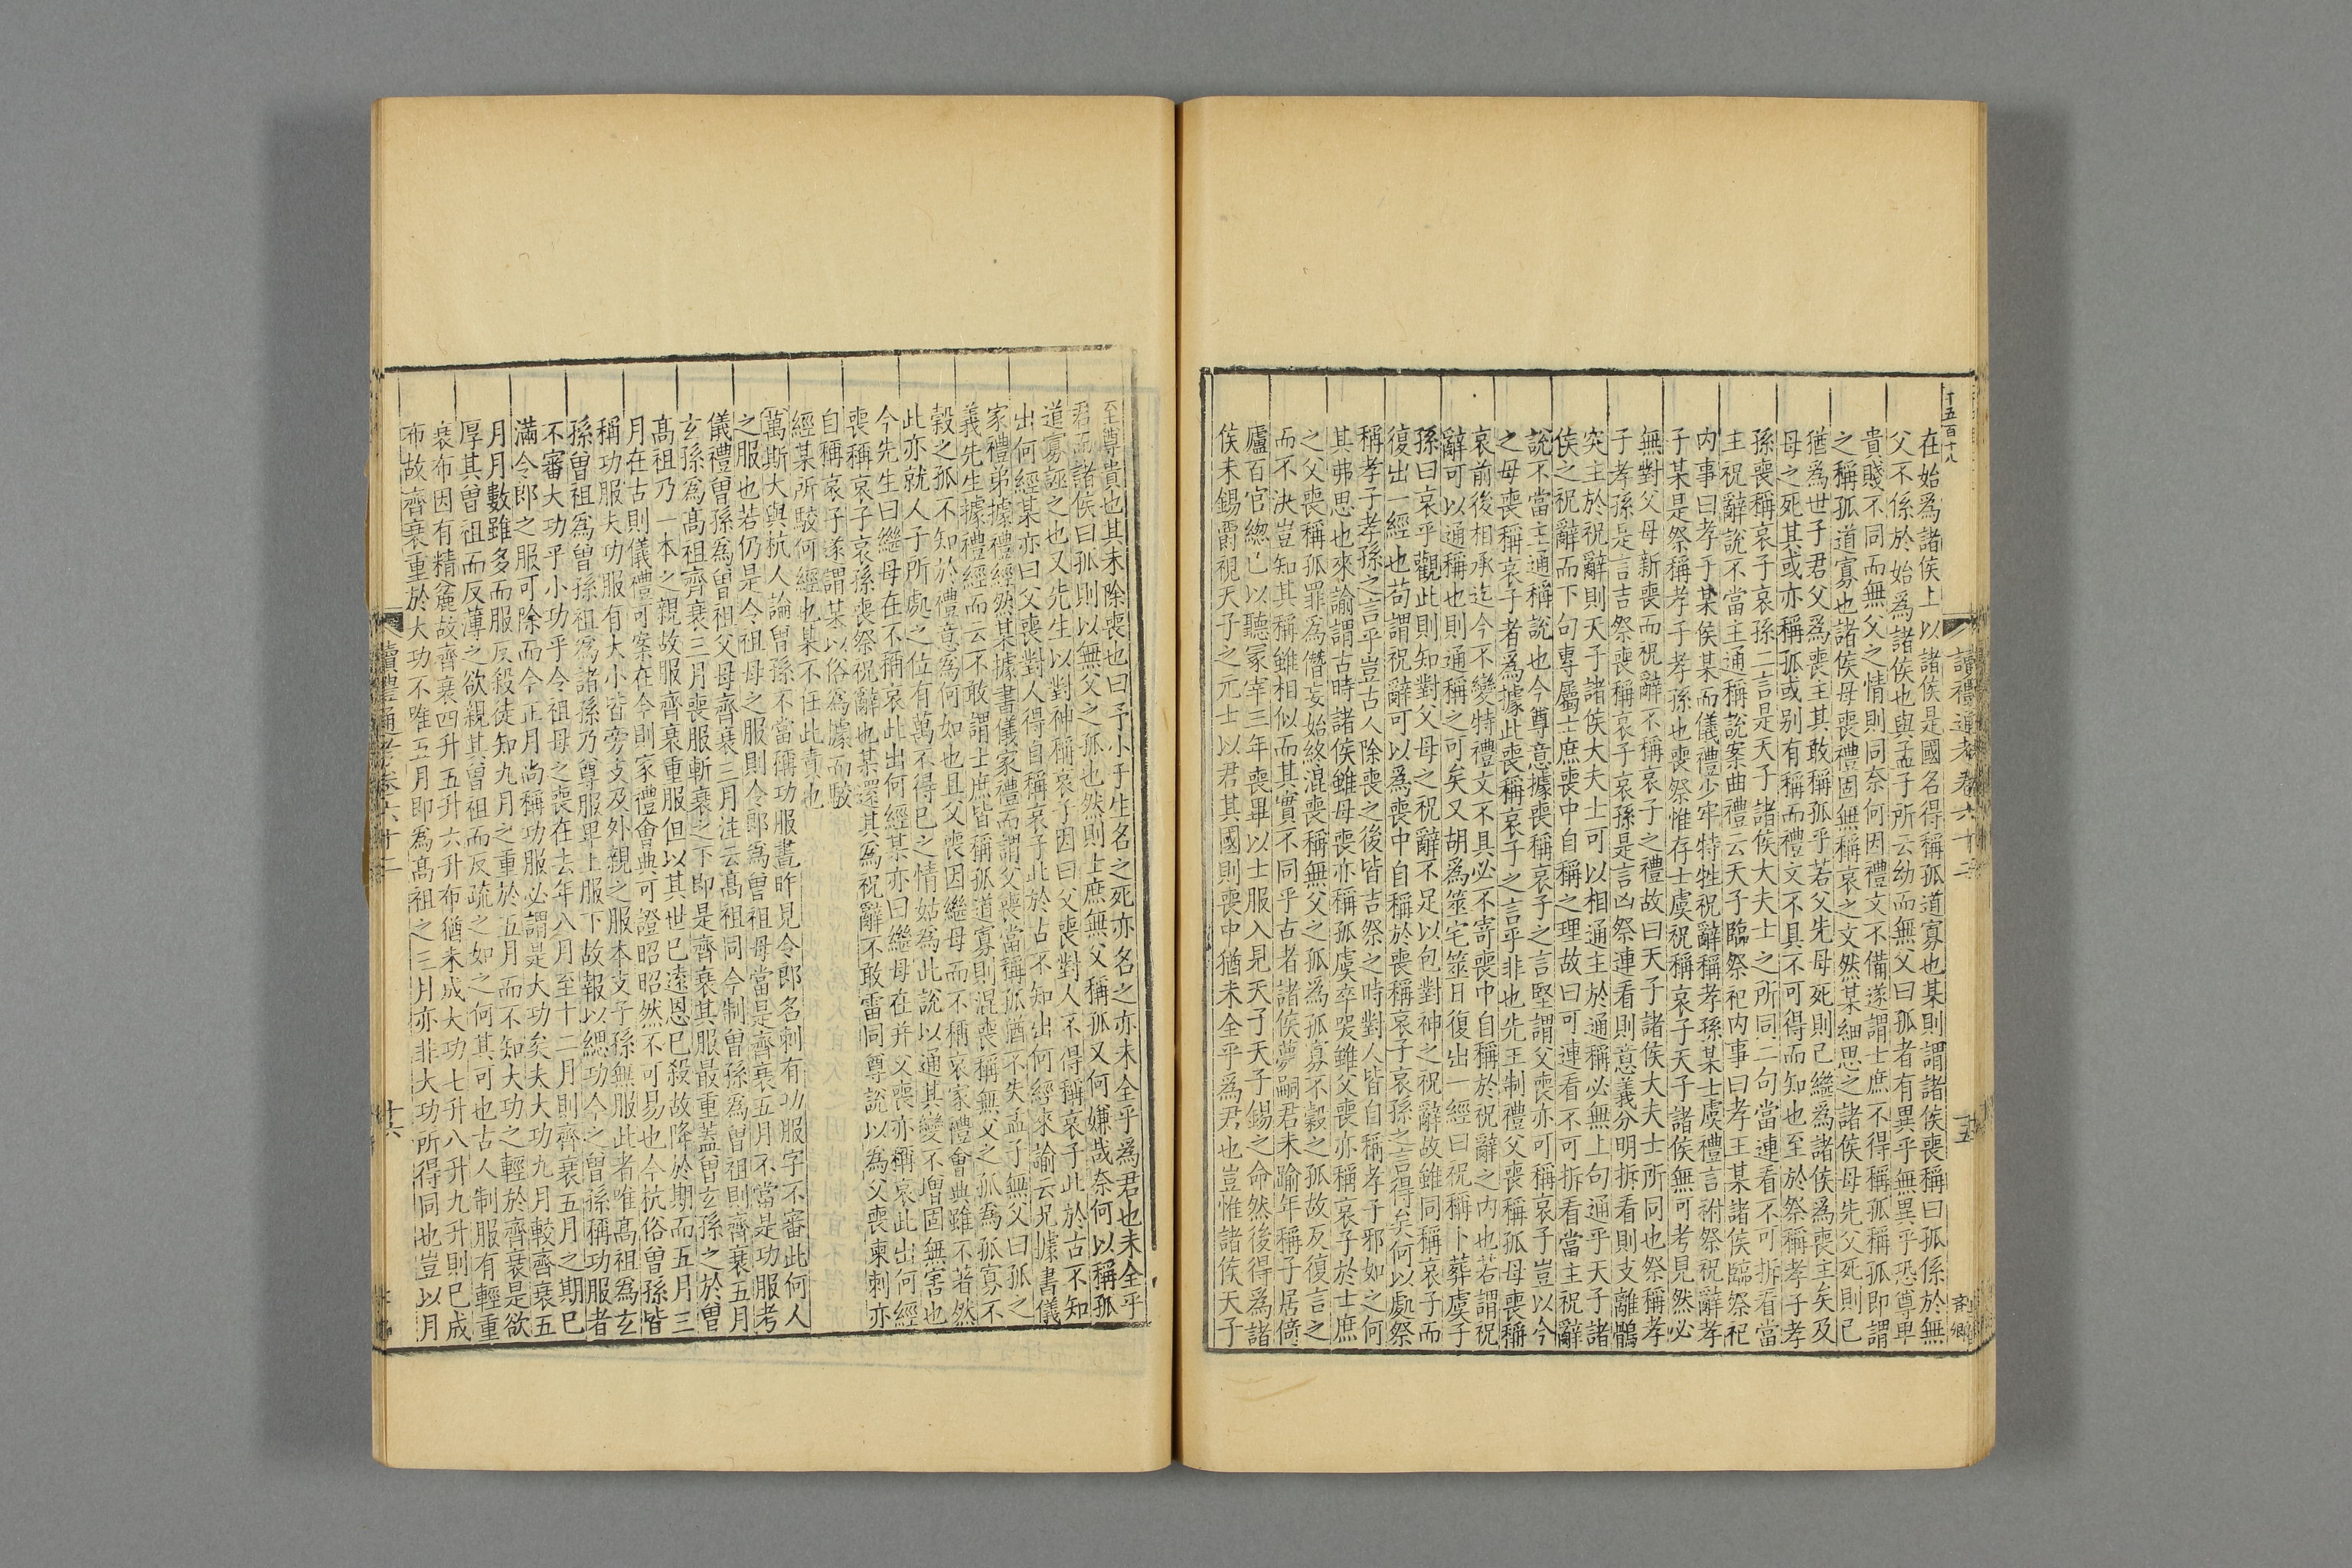 十五百十八
讀禮通考卷六十二
十五
在始爲諸侯上以諸侯是國名得稱孤道寡也某則謂諸侯喪稱曰孤係於無
父不係於始爲諸侯也與孟子所云幼而無父曰孤者有異乎無異乎恐尊卑
貴賤不同而無父之情則同奈何因禮文不備遂謂士庶不得稱孤稱孤即謂
之稱孤道寡也諸侯母喪禮固無稱哀之文然某細思之諸侯母先父死則已
猶爲世子君父爲喪主其敢稱孤乎若父先母死則己繼爲諸侯爲喪主矣及
母之死其或亦稱孤或别有稱而禮文不具不可得而知也至於祭稱孝子孝
孫喪稱哀子哀孫二言是天子諸侯大夫士之所同二句當連看不可拆看當
主祝辭說不當主通稱說案曲禮云天子臨祭祀内事曰孝王某諸侯臨祭祀
内事曰孝子某侯某而儀禮少牢特牲祝辭稱孝孫某士虞禮言祔祭祝辭孝
子某是祭稱孝子孝孫也喪祭惟存士虞祝稱哀子天子諸侯無可考見然必
無對父母新喪而祝辭不稱哀子之禮故曰天子諸侯大夫士所同也祭稱孝
子孝孫是言吉祭喪稱哀子哀孫是言凶祭連看則意義分明拆看則支離鶻
突主於祝辭則天子諸侯大夫士可以相通主於通稱必無上句通乎天子諸
侯之祝辭而下句專屬士庶喪中自稱之理故曰可連看不可拆看當主祝辭
說不當主通稱說也今尊意據喪稱哀子之言堅謂父喪亦可稱哀子豈以今
之母喪稱哀子者爲據此喪稱哀子之言乎非也先王制禮父喪稱孤母喪稱
哀前後相承迄今不變特禮文不具必不寄喪中自稱於祝辭之内也若謂祝
辭可以通稱也則通稱之可矣又胡爲筮宅筮日復出一經曰祝稱卜葬虞子
孫曰哀乎觀此則知對父母之祝辭不足以包對神之祝辭故雖同稱哀子而
復出一經也苟謂祝辭可以爲喪中自稱於喪稱哀子哀孫之言得矣何以處祭
稱孝子孝孫之言乎豈古人除喪之後皆吉祭之時對人皆自稱孝子邪如之何
其弗思也來諭謂古時諸侯雖母喪亦稱孤虞卒哭雖父喪亦稱哀子於士庶
之父喪稱孤罪爲僭妄始終混喪稱無父之孤爲孤寡不穀之孤故反復言之
而不決豈知其稱雖相似而其實不同乎古者諸侯薨嗣君未踰年稱子居倚
廬百官緫己以聽冢宰三年喪畢以士服入見天子天子錫之命然後得爲諸
侯未錫爵視天子之元士以君其國則喪中猶未全乎爲君也豈惟諸侯天子
至尊貴也其未除喪也曰予小子生名之死亦名之亦未全乎爲君也未全乎
君而諸侯曰孤則以無父之孤也然則士庶無父稱孤又何嫌哉奈何以稱孤
道寡誣之也又先生以對神稱哀子因曰父喪對人不得稱哀子此於古不知
出何經某亦曰父喪對人得自稱哀子此於古不知出何經來諭云兄據書儀
家禮弟據禮經然某據書儀家禮而謂父喪當稱孤猶不失孟子無父曰孤之
義先生據禮經而云不敢謂士庶皆稱孤道寡則混喪稱無父之孤爲孤寡不
穀之孤不知於禮意爲何如也且父喪因繼母而不稱哀家禮會典雖不著然
此亦就人子所處之位有萬不得已之情姑爲此說以通其變不增固無害也
今先生曰繼母在不稱哀此出何經某亦曰繼母在并父喪亦稱哀此出何經
喪稱哀子哀孫喪祭祝辭也某還其爲祝辭不敢雷同尊說以爲父喪柬刺亦
自稱哀子遂謂某以俗爲據而駁
經某所駮何經也某不任此責也
萬斯大與杭人論曾孫不當稱功服書昨見令郎名刺有功服字不審此何人
之服也若仍是令祖母之服則令郎爲曾祖母當是齊衰五月不當是功服考
儀禮曾孫爲曾祖父母齊衰三月注云髙祖同今制曾孫爲曾祖則齊衰五月
玄孫爲髙祖齊衰三月喪服斬衰之下即是齊衰其服最重蓋曾玄孫之於曾
髙祖乃一本之親故服齊衰重服但以其世已遠恩已殺故降於期而五月三
月在古則儀禮可案在今則家禮會典可證昭昭然不可易也今杭俗曾孫皆
稱功服夫功服有大小皆旁支及外親之服本支子孫無服此者唯髙祖爲玄
孫曾祖爲曾孫祖爲諸孫乃尊服卑上服下故報以緦功今之曾孫稱功服者
不審大功乎小功乎令祖母之喪在去年八月至十二月則齊衰五月之期已
滿令郎之服可除而今正月尚稱功服必謂是大功矣夫大功九月較齊衰五
月月數雖多而服反殺徒知九月之重於五月而不知大功之輕於齊衰是欲
厚其曾祖而反薄之欲親其曾祖而反疏之如之何其可也古人制服有輕重
衰布因有精麄故齊衰四升五升六升布猶未成大功七升八升九升則已成
布故齊衰重於大功不唯五月即爲髙祖之三月亦非大功所得同也豈以月
讀禮通考卷六十二
十六